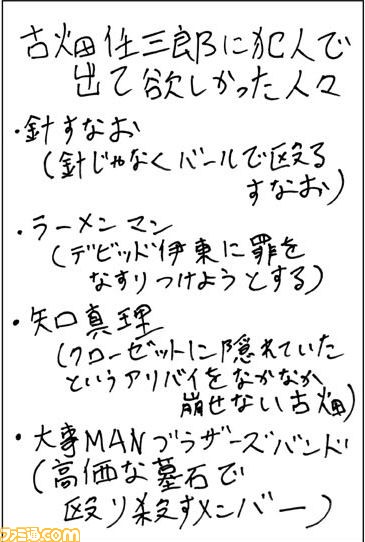 古畑任三郎に犯人で
出て欲しかった人々
・針すなお
(針じゃなくバールで殴る
すなお)
・ラーメンマン
(デビッド伊東に罪を
なすりつけようとする)
・矢口真理
(クローゼットに隠れていた
というアリバイをなかなか
崩せない古畑)
・大事MANブラザーズバンド
(高価な墓石で
殴り殺すメンバー)
ファミ通.com